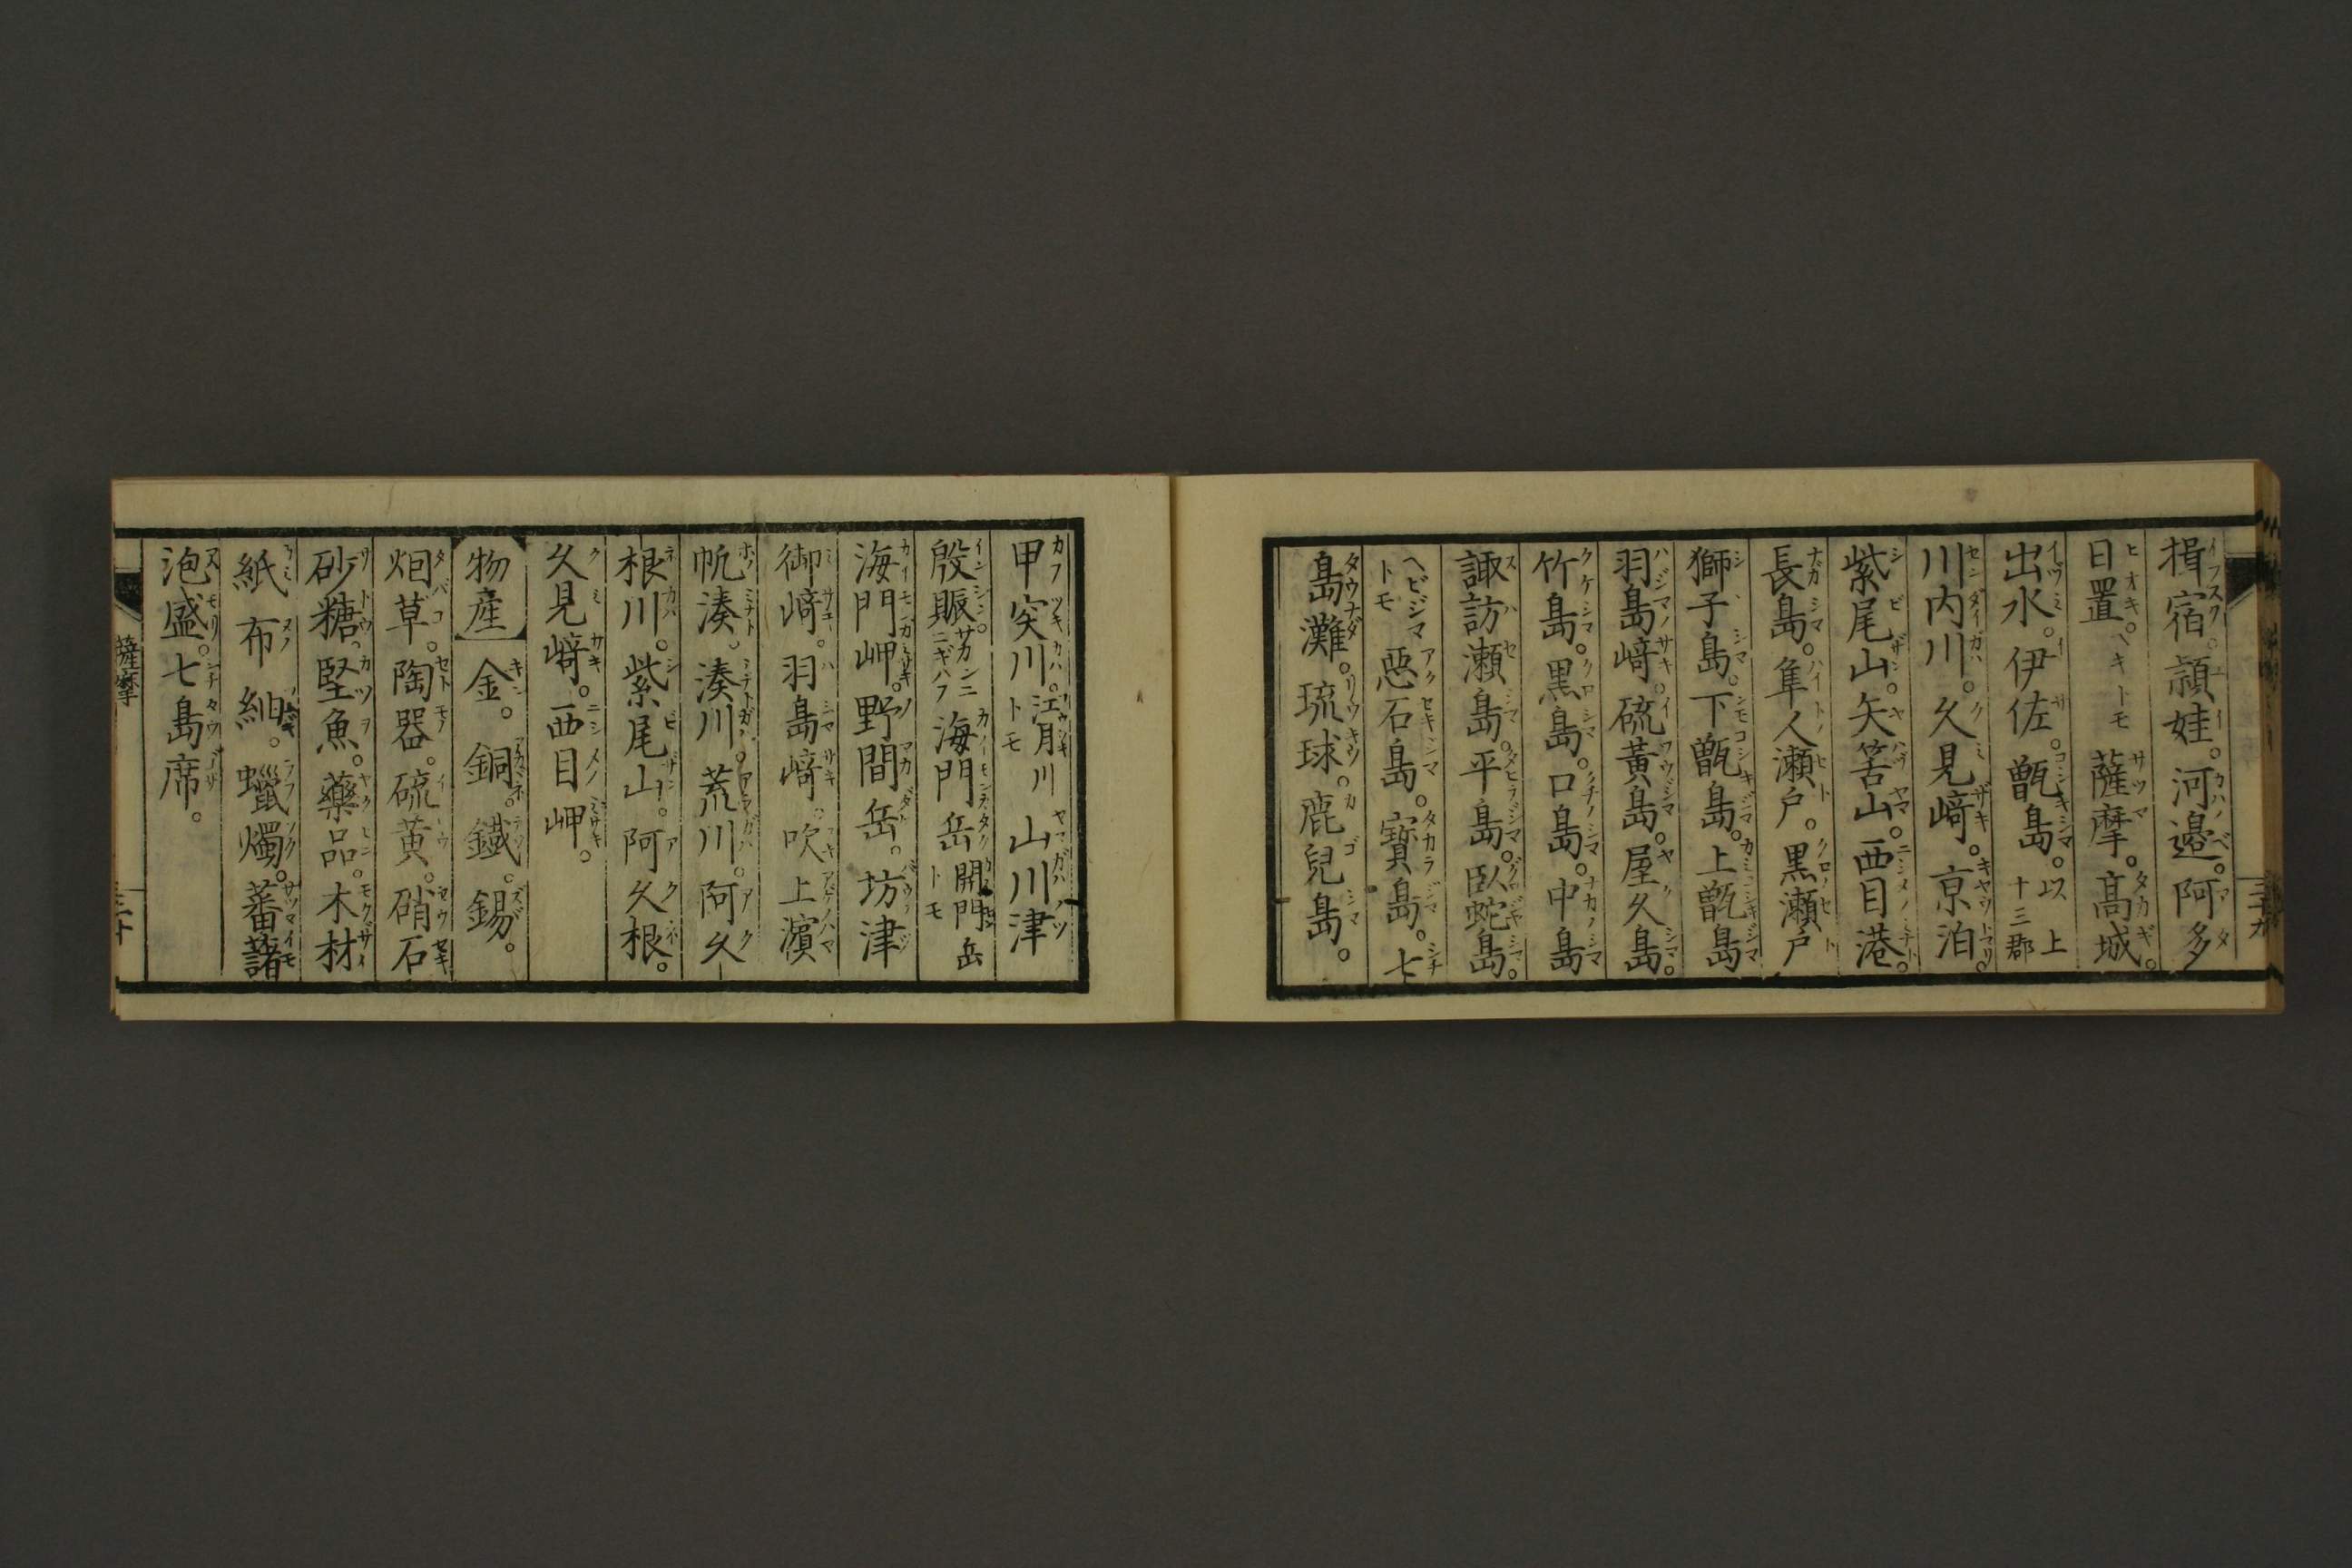 揖宿。頴娃。河邉。阿多
日置。ヘキトモ 薩摩。髙城。
出水。伊佐。甑島。以上十三郡
川内川。久見﨑。京泊。
紫尾山。矢筈山。西目港。
長島。隼人瀬戸。黒瀬戸
獅子島。下甑島。上甑島
羽島﨑。硫黄島。屋久島。
竹島。黒島。口島。中島
諏訪瀬島。平島。臥蛇島。
ヘビジマトモ 惡石島。寳島。七
島灘。琉球。鹿兒島。
甲突川。江月川トモ 山川津
殷賑サカンニニギハフ 海門岳開門岳トモ
海門岬。野間岳。坊津
御﨑。羽島﨑。吹上濵
帆湊。湊川。荒川。阿久
根川。紫尾山。阿久根。
久見﨑。西目岬。
物産 金。銅。鐵。錫。
烟草。陶器。硫黄。硝石
砂糖。堅魚。藥品。木材
紙 布 紬。蠟燭。蕃藷
泡盛。七島席。
薩摩